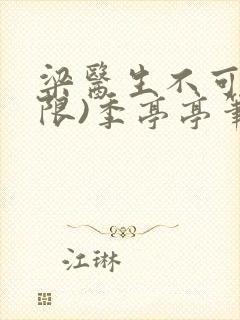 梁醫生不可
限)季亭亭筆
江琳